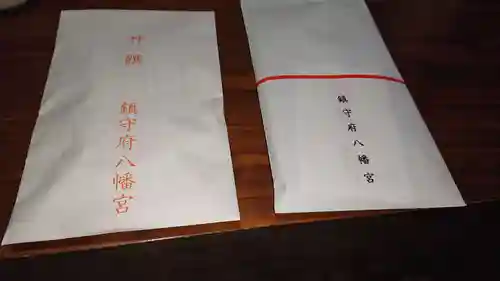 鎮守府八幡宮
鎮守府八幡宮